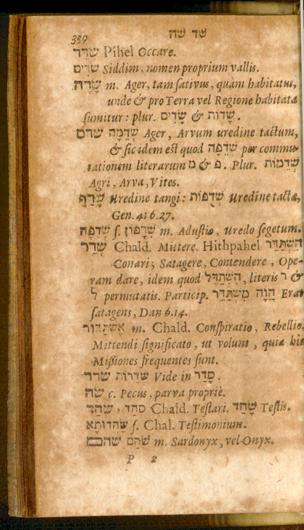 339 שד שה
שדד Pihel Occare.
שדים Siddim, nomen proprium vallis.
שדה m. Ager, tam sativus, quàm habitatus,
unde & pro Terra vel Regione habitata
sumitur: plur. שדים & שדות.
שדם שדמה Ager, Arvum uredine tactum,
& sic idem est quod שדפה per commu-
tationem literarum מ & פ. Plur. שדמות
Agri, Arva, Vites.
שדף Uredine tangi: שדפות Uredine tactæ,
Gen. 41 6. 27.
שדפה f. שדפון m. Adustio, Uredo segetum.
שדר Chald. Mittere. Hithpahel השתדר
Conari, Satagere, Contendere, Ope-
ram dare, idem quod השתדל, literis ר &
ל permutatis. Particip. הוה משתדר Erat
satagens, Dan 6. 14.
אשתדור m. Chald. Conspiratio, Rebellio.
Mittendi significato, ut volunt, quia hic
Missiones frequentes sunt.
שדר שדרות Vide in סדר.
שה c. Pecus, parva propriè.
שהד, סהד Chald. Testari. שהד Testis.
שהדותא f. Chal. Testimonium.
שהם שהם m. Sardonyx, vel Onyx.
P 2